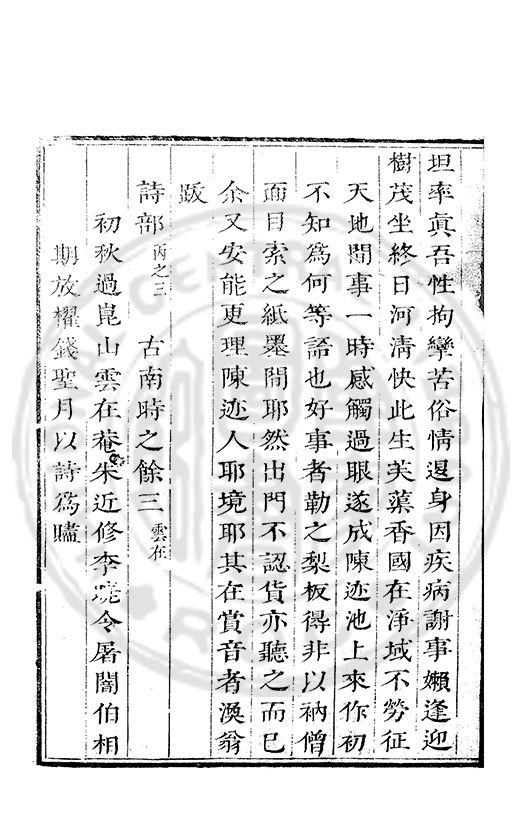 坦率眞吾性拘攣苦俗情退身因疾病謝事嬾逢迎
樹茂坐終日河淸快此生芙蕖香國在淨域不勞征
天地間事一時感觸過眼遂成陳迹池上來作初
不知爲何等語也好事者勒之梨板得非以衲僧
面目索之紙墨間耶然出門不認貨亦聽之而已
余又安能更理陳迹人耶境耶其在賞音者渙翁
跋
詩部 丙之三 古南時之餘三 雲在
初秋過崑山雲在菴朱近修李曉令屠闇伯相
期放櫂錢聖月以詩爲贐